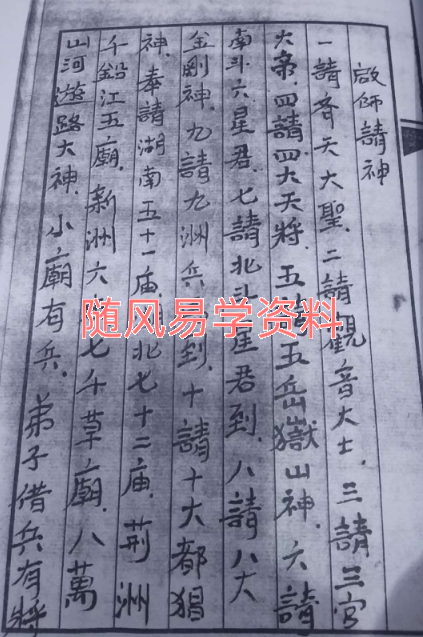 啟师請神
一請齐天大聖.二請觀音大士.三請三官
大帝.四請四大天將.五請五岳嶽山神.六請
南斗六星君.七請北斗星君到.八請八大
金剛神.九請九洲兵到.十請十大都猖
神.奉請湖南五十一庙北七十二庙.荊洲
千鉛江五廟.新洲六七千草廟.八萬
山河遊路大神.小廟有兵.弟子借兵有将
随风易学资料